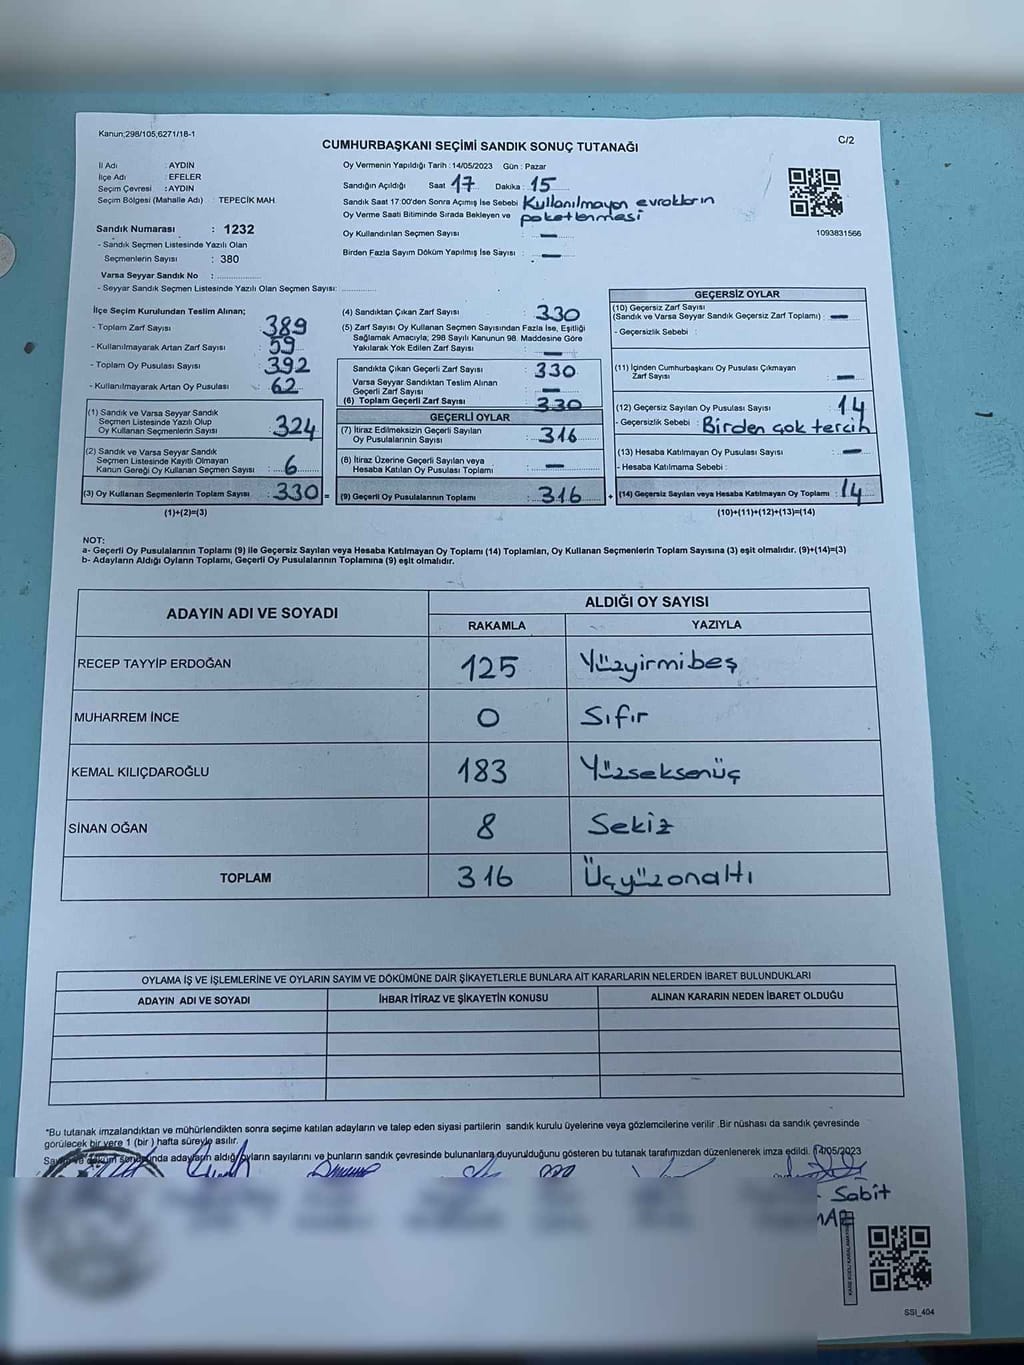 Kanun;298/105,6271/18-1
C/2
CUMHURBAŞKANI SEÇİMİ SANDIK SONUÇ TUTANAĞI
İl Adı : AYDIN
İlçe Adı : EFELER
Seçim Çevresi : AYDIN
Seçim Bölgesi (Mahalle Adı) : TEPECİK MAH.
Sandık Numarası : 1232
- Sandık Seçmen Listesinde Yazılı Olan
Seçmenlerin Sayısı : 380
Varsa Seyyar Sandık No :
- Seyyar Sandık Seçmen Listesinde Yazılı Olan Seçmen Sayısı:
Oy Vermenin Yapıldığı Tarih : 14/05/2023 Gün : Pazar
Sandığın Açıldığı Saat 17 Dakika : 15
Sandık Saat 17:00'den Sonra Açımış İse Sebebi Kullanılmayan evrakların
Oy Verme Saati Bitiminde Sırada Bekleyen ve paketlenmesi
Oy Kullandırılan Seçmen Sayısı : —
Birden Fazla Sayım Döküm Yapılmış İse Sayısı : —
1093831566
İlçe Seçim Kurulundan Teslim Alınan;
- Toplam Zarf Sayısı : 389
- Kullanılmayarak Artan Zarf Sayısı : 59
- Toplam Oy Pusulası Sayısı : 392
- Kullanılmayarak Artan Oy Pusulası : 62
(1) Sandık ve Varsa Seyyar Sandık
Seçmen Listesinde Yazılı Olup
Oy Kullanan Seçmenlerin Sayısı : 324
(2) Sandık ve Varsa Seyyar Sandık
Seçmen Listesinde Kayıtlı Olmayan
Kanun Gereği Oy Kullanan Seçmen Sayısı : 6
(3) Oy Kullanan Seçmenlerin Toplam Sayısı : 330 =
(1)+(2)=(3)
(4) Sandıktan Çıkan Zarf Sayısı : 330
(5) Zarf Sayısı Oy Kullanan Seçmen Sayısından Fazla İse, Eşitliği
Sağlamak Amacıyla; 298 Sayılı Kanunun 98. Maddesine Göre
Yakılarak Yok Edilen Zarf Sayısı : —
Sandıkta Çıkan Geçerli Zarf Sayısı : 330
Varsa Seyyar Sandıktan Teslim Alınan
Geçerli Zarf Sayısı : —
(6) Toplam Geçerli Zarf Sayısı : 330
GEÇERLİ OYLAR
(7) İtiraz Edilmeksizin Geçerli Sayılan
Oy Pusulalarının Sayısı : 316
(8) İtiraz Üzerine Geçerli Sayılan veya
Hesaba Katılan Oy Pusulası Toplamı : —
(9) Geçerli Oy Pusulalarının Toplamı : 316 +
GEÇERSİZ OYLAR
(10) Geçersiz Zarf Sayısı
(Sandık ve Varsa Seyyar Sandık Geçersiz Zarf Toplamı) : —
- Geçersizlik Sebebi :
(11) İçinden Cumhurbaşkanı Oy Pusulası Çıkmayan
Zarf Sayısı : —
(12) Geçersiz Sayılan Oy Pusulası Sayısı : 14
- Geçersizlik Sebebi : Birden çok tercih
(13) Hesaba Katılmayan Oy Pusulası Sayısı : —
- Hesaba Katılmama Sebebi :
(14) Geçersiz Sayılan veya Hesaba Katılmayan Oy Toplamı : 14
(10)+(11)+(12)+(13)=(14)
NOT:
a- Geçerli Oy Pusulalarının Toplamı (9) ile Geçersiz Sayılan veya Hesaba Katılmayan Oy Toplamı (14) Toplamları, Oy Kullanan Seçmenlerin Toplam Sayısına (3) eşit olmalıdır. (9)+(14)=(3)
b- Adayların Aldığı Oyların Toplamı, Geçerli Oy Pusulalarının Toplamına (9) eşit olmalıdır.
ADAYIN ADI VE SOYADI ALDIĞI OY SAYISI
RAKAMLA YAZIYLA
RECEP TAYYİP ERDOĞAN 125 Yüzyirmibeş
MUHARREM İNCE 0 Sıfır
KEMAL KILIÇDAROĞLU 183 Yüzseksenüç
SİNAN OĞAN 8 Sekiz
TOPLAM 316 Üçyüzonaltı
OYLAMA İŞ VE İŞLEMLERİNE VE OYLARIN SAYIM VE DÖKÜMÜNE DAİR ŞİKAYETLERLE BUNLARA AİT KARARLARIN NELERDEN İBARET BULUNDUKLARI
ADAYIN ADI VE SOYADI İHBAR İTİRAZ VE ŞİKAYETİN KONUSU ALINAN KARARIN NEDEN İBARET OLDUĞU
*Bu tutanak imzalandıktan ve mühürlendikten sonra seçime katılan adayların ve talep eden siyasi partilerin sandık kurulu üyelerine veya gözlemcilerine verilir .Bir nüshası da sandık çevresinde
görülecek bir yere 1 (bir ) hafta süreyle asılır.
Sayım ve döküm sonucunda adayların aldığı oyların sayılarını ve bunların sandık çevresinde bulunanlara duyurulduğunu gösteren bu tutanak tarafımızdan düzenlenerek imza edildi. 14/05/2023
Sabit
SSİ_404